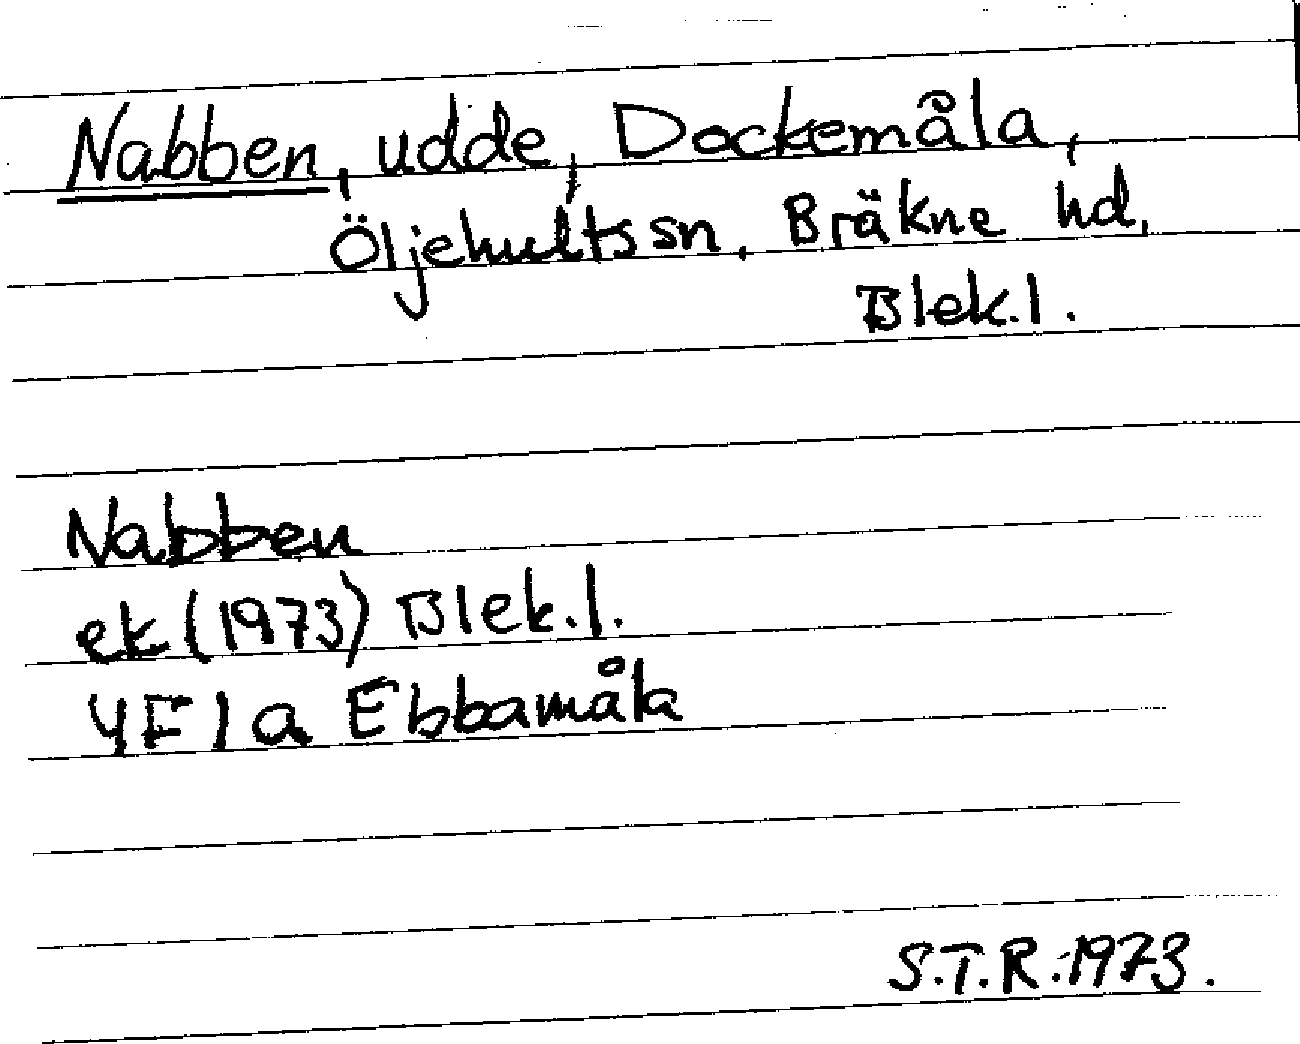 Nabben, udde, Dockemåla,
Öljehults sn, Bräkne hd,
Blek.l.
Nabben
ek (1973) Blek.l.
4F1a Ebbamåla
S.T.R. 1973.